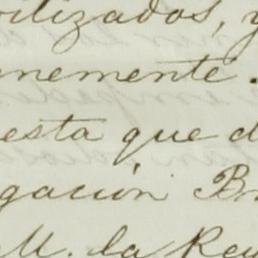 ilizados, y
nemente.
esta que d
gación Br
M. la Rey